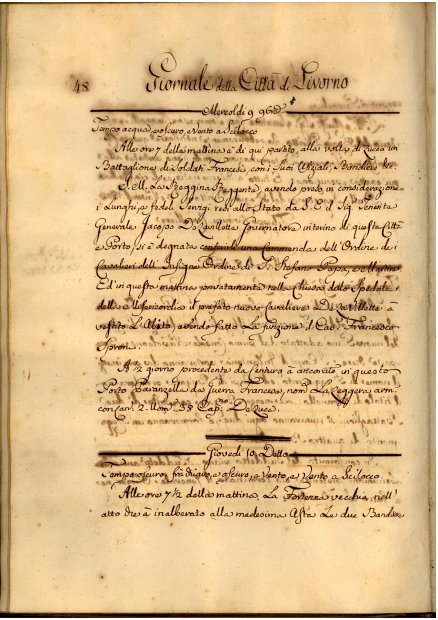 48 Giornale della Città di Livorno
Mercoldi 9
Tempo acqua, e oscuro, e Vento a Scilocco
Alle ore 7 della mattina è di qui partito, alla volta di Lucca un
Battaglione di Soldati Francesi, con i Suoi Uficiali, e Bandiere
S. M. La Reggina Reggente, avendo preso in considerazione
i Lunghi, e fedeli Servizi resi allo Stato da S. E. il Sig. Tenente
Generale Jacopo De la Villette Governatore interino di questa Città
e Porto, si è degnata conferirli una Commenda dell'Ordine dei
Cavalieri dell'Insigne Ordine di S. Stefano Papa, e Martire
Ed in questa mattina privatamente nella Chiesa dello Spedale
della Misericordia il prefato nuovo Cavaliere De la Villette à
vestito L'Abito avendo fatto La funzione il Cav. Francesco
Sproni
A ½ giorno procedente da Ventura à ancorato in questo
Porto Paranzella da Guerra Francese, nom. La Leggera arm.
con Can. 2. Uom. 38 Cap.
Giovedi 10 Detto
Tempo oscuro, fra di giorno, e oscuro, e Vento, a Scilocco
Alle ore 7½ della mattina La Fortezza vecchia, nell'
atto che à inalberato alla medesima Asta Le due Bandiere